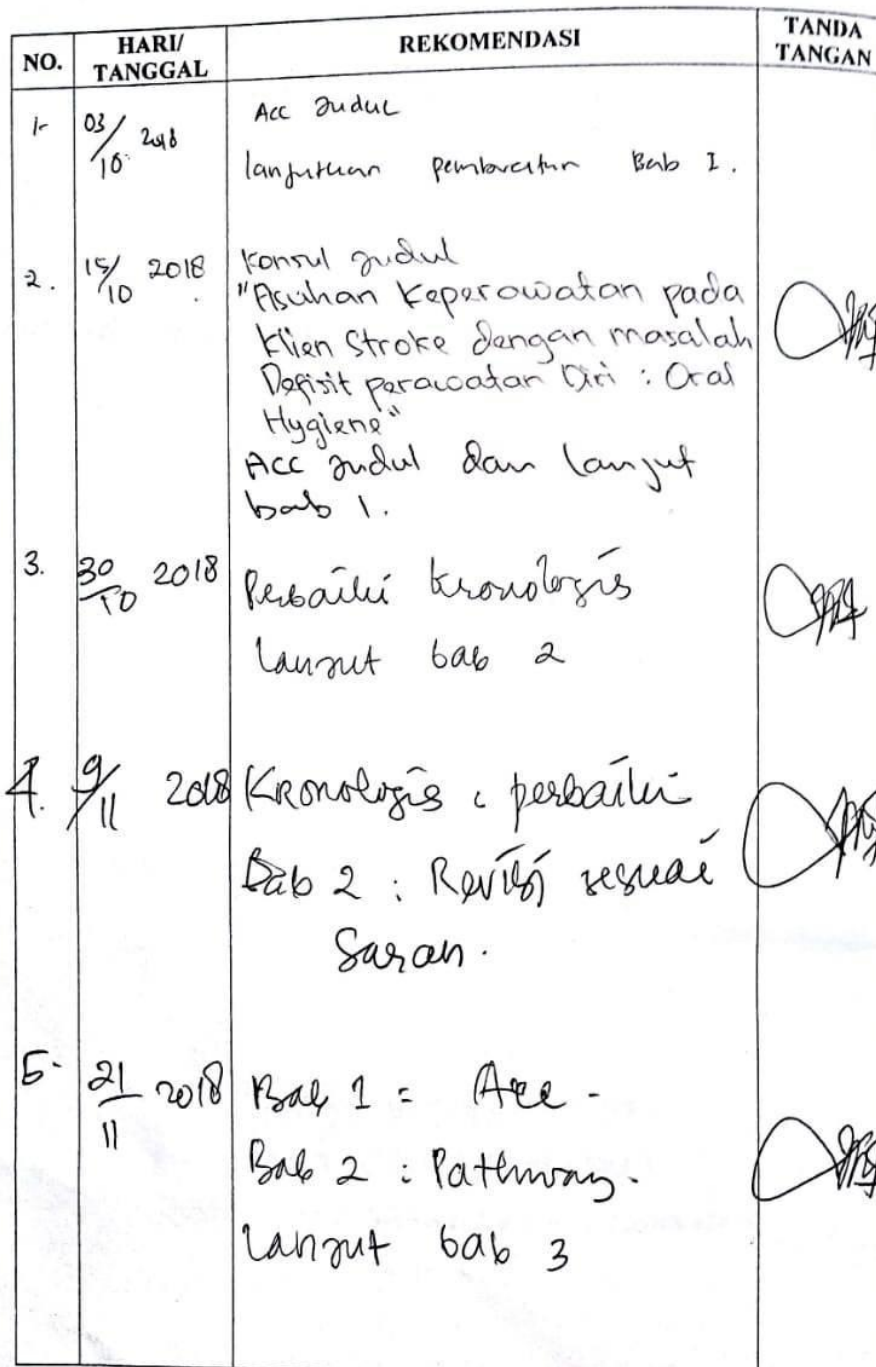 NO.
HARI/
TANGGAL
REKOMENDASI
TANDA
TANGAN
1-
03/10 2018
Acc Judul
lanjutkan pembuatan Bab I.
2.
15/10 2018
Konsul judul
"Asuhan Keperawatan pada
Klien Stroke dengan masalah
Defisit perawatan Diri : Oral
Hygiene"
Acc judul dan lanjut
bab 1.
3.
30/10 2018
Perbaiki kronologis
lanjut bab 2
4.
9/11 2018
Kronologis : perbaiki
Bab 2 : Revisi sesuai
Saran.
5.
21/11 2018
Bab 1 = Acc -
Bab 2 : Pathway.
lanjut bab 3